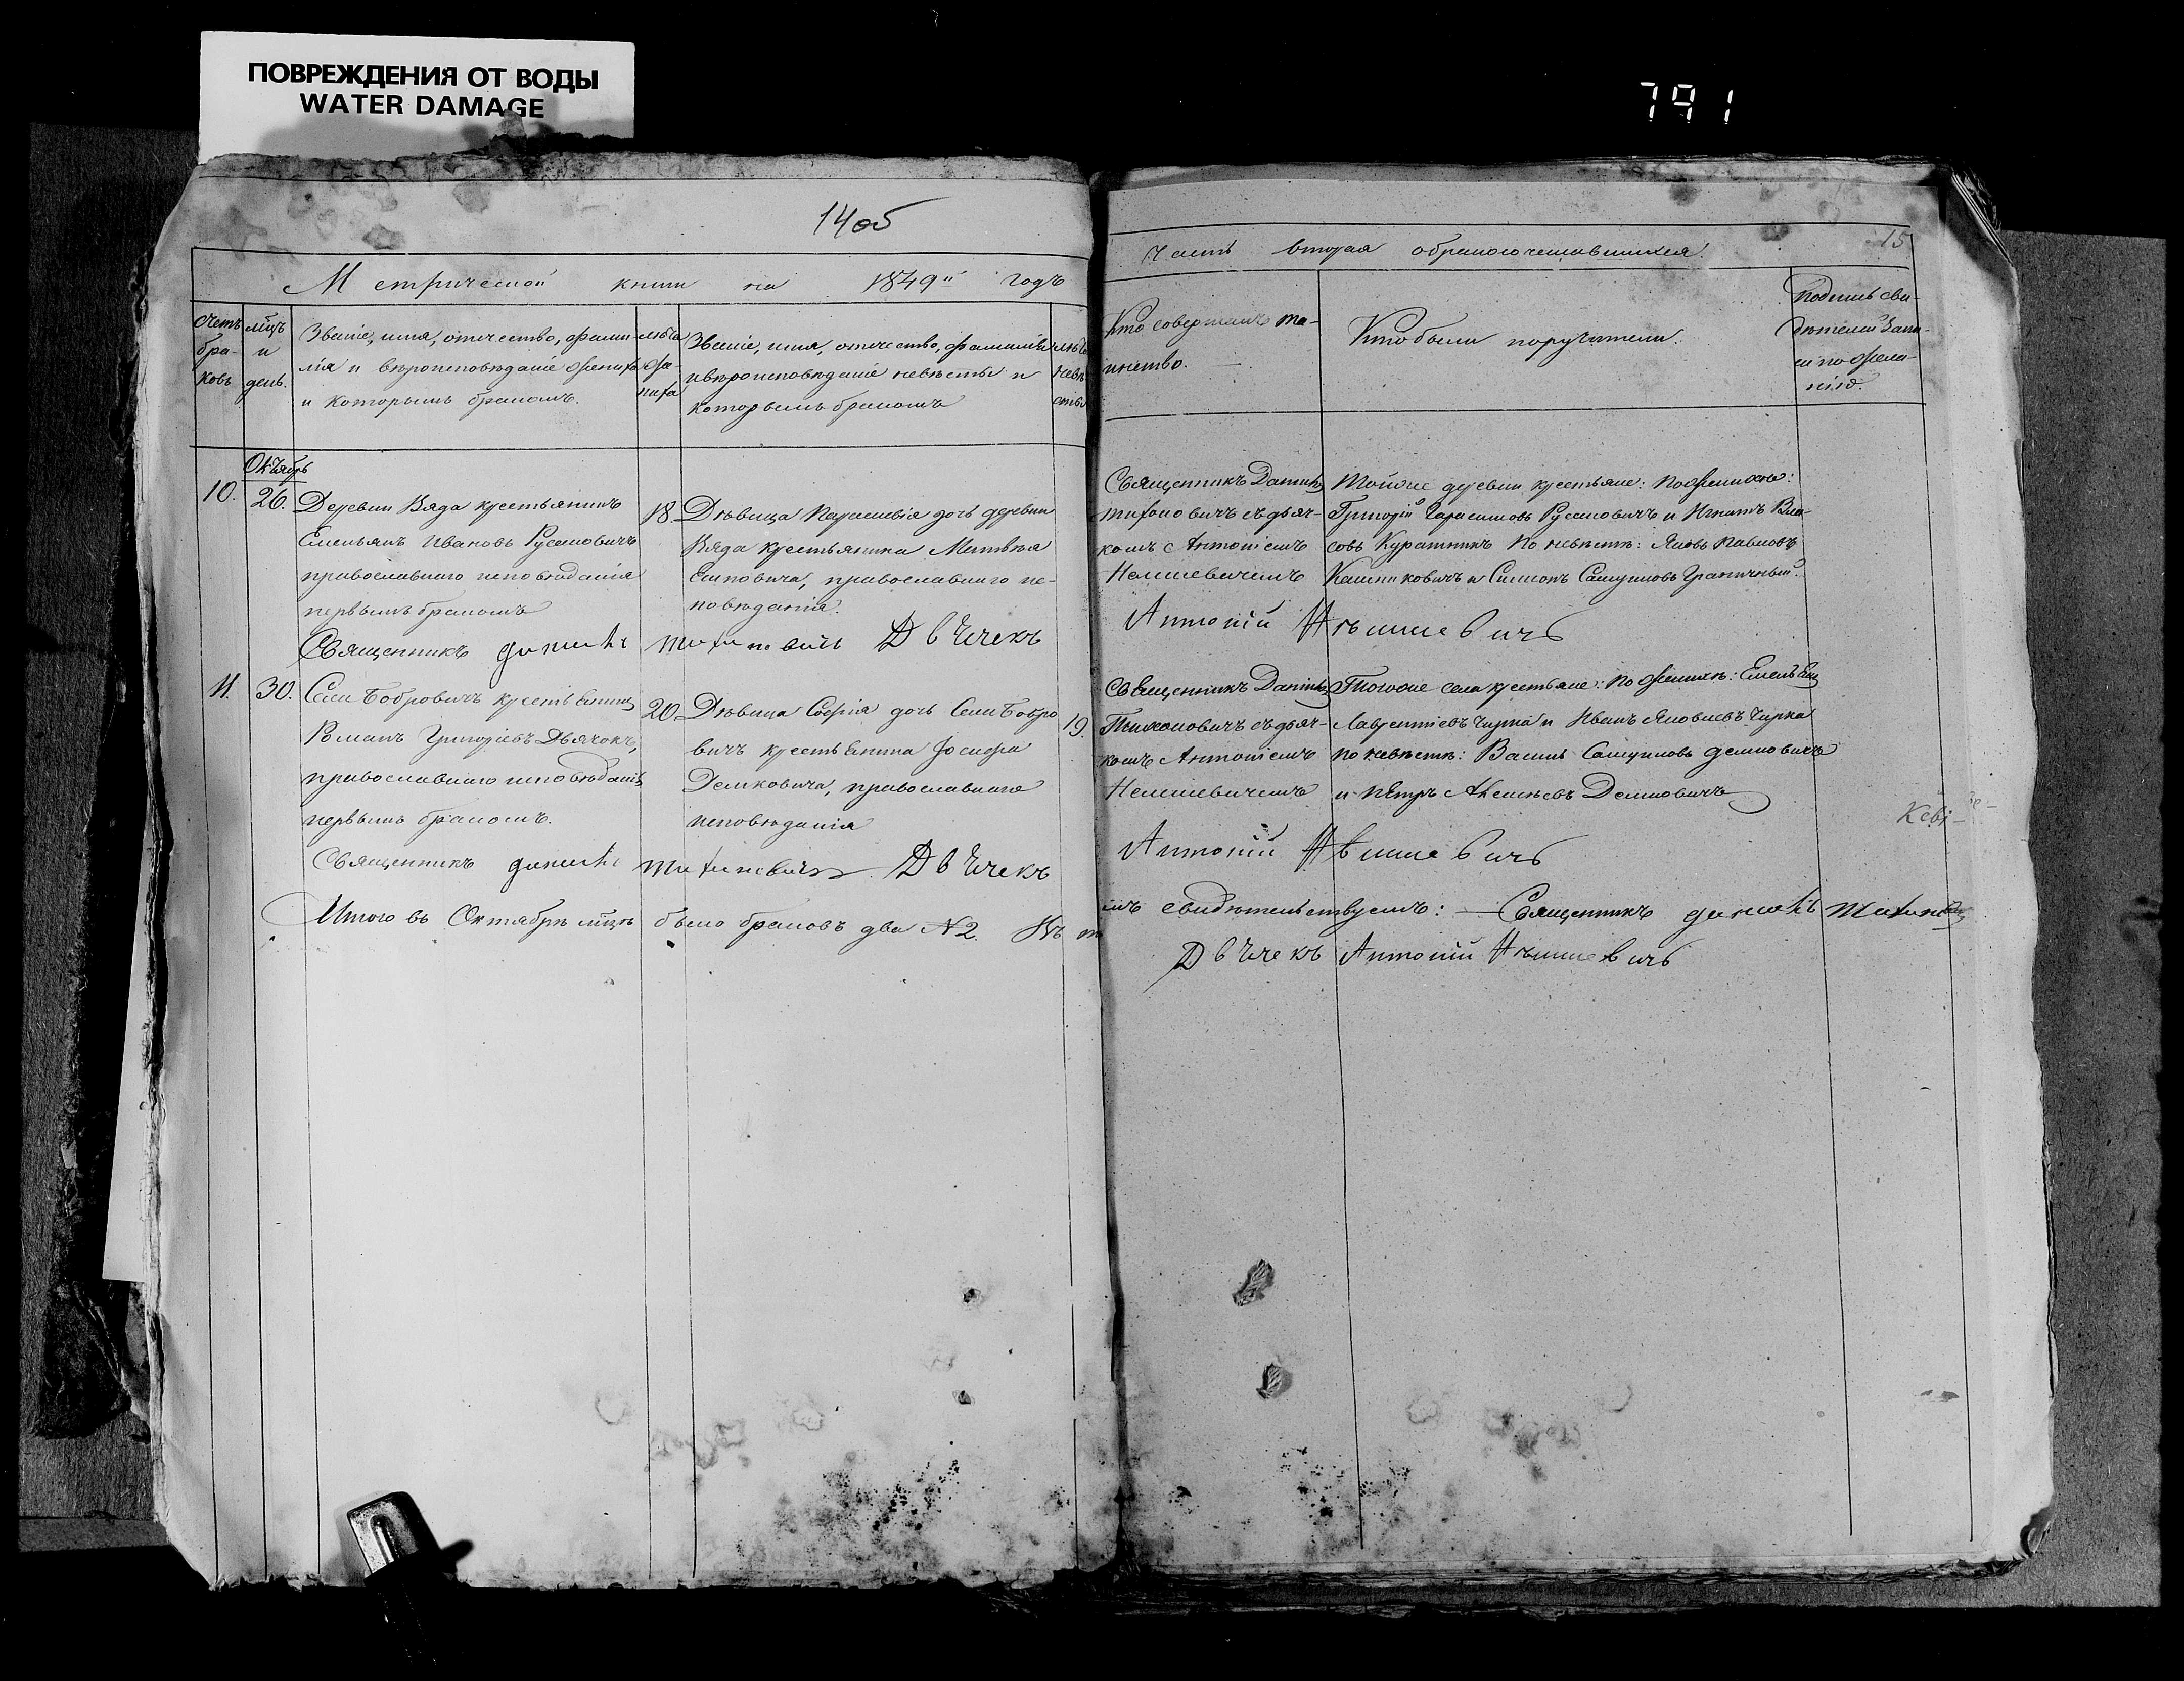 ПОВРЕЖДЕНИЯ ОТ ВОДЫ
WATER DAMAGE
791
14об
Метрической книги на 1849й годъ
Счетъ бра-ковъ
мѣцъ и день.
Званіе, имя, отчество, фами-
лія и вѣроисповѣданіе жениха
и которымъ бракомъ.
лѣта же-ниха
Званіе, имя, отчество, фамилія
и вѣроисповѣданіе невѣсты и
которымъ бракомъ
лѣта невѣ-сты
Октябрь
10.
26.
Деревни Вяда крестьянинъ
Емельянъ Ивановъ Русаковичъ
православнаго исповѣданія
первымъ бракомъ
18.
Дѣвица Параскевія дочь деревни
Вяда крестьянина Матвѣя
православнаго ис-
повѣданія.
Священникъ Данiилъ Тихановичъ Дьячекъ
11.
30.
Села Бобровичъ крестьянинъ
Романъ Григоріевъ Дьячокъ,
православнаго исповѣданія
первымъ бракомъ.
20.
Дѣвица Софія дочь Села Бобро
вичъ крестьянина Іосифа
Демковича, православнаго
исповѣданія
19.
Священникъ Данiилъ Тихановичъ Дьячекъ
Итого въ Октябрѣ мѣцѣ было браковъ два №2. Въ
15
Часть вторая о бракосочетавшихся.
Кто совершалъ та-
инство.
Кто были поручители.
Подпись сви-
дѣтелей запи-
си по жела-
нію.
Священникъ Даніилъ
Тихоновичъ съ дьяч-
комъ Антоніемъ
Тойже деревни крестьяне: по женихѣ:
Григорій Герасимовъ Русаковичъ и Игнатъ Вла-
совъ Куратникъ по невѣстѣ: Яковъ Павловъ
и Симонъ Самуиловъ
Антоній
Священникъ Даніилъ
Тихоновичъ съ дьяч-
комъ Антоніемъ
Тогоже села крестьяне: по женихѣ:
Лаврентіевъ Чирка и Иванъ Яковлевъ Чирка
по невѣстѣ: Василь Самуиловъ Демковичъ
и Петръ Алексѣевъ Демковичъ
Антоній
свидѣтельствуемъ: Священникъ Данiилъ
Дьячекъ Антоній